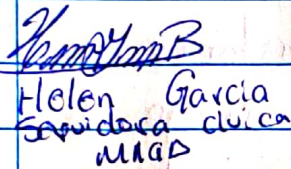 Helen Garcia
Servidora cívica
MAGD